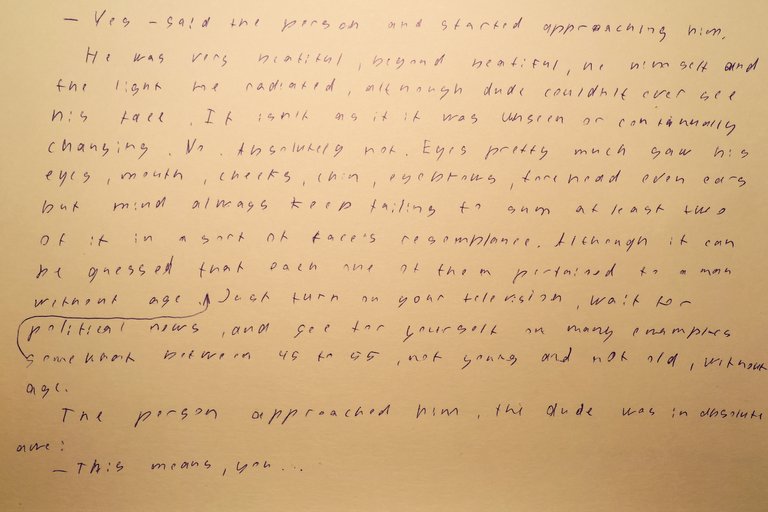 — Yes - said the person and started approaching him.
He was very beatiful, beyond beatiful, he himself and
the light he radiated, although dude couldn't ever see
his face. It isn't as if it was unseen or continually
changing. No. Absolutely not. Eyes pretty much saw his
eyes, mouth, cheeks, chin, eyebrows, forehead even ears
but mind always keep failing to sum at least two
of it in a sort of face's resemplance. Although it can
be guessed that each one of them pertained to a man
without age. Just turn on your television, wait for
political news, and see for yourself on many examples
somewhat between 45 to 55, not young and not old, without
age.
The person approached him, the dude was in absolute
awe:
— This means, you...